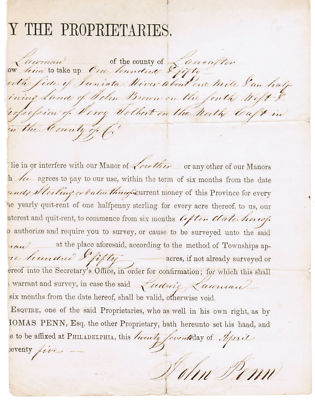 Y THE PROPRIETARIES.
Lawman of the county of Lancaster
low him to take up One hundred & fifty
orth side of Juniata River about one mile & an half
ining Land of John Brown on the South West &
of George on the North East in
in the County of
l lie in or interfere with our Manor of Lowther or any other of our Manors
h he agrees to pay to our use, within the term of six months from the date
ounds Sterling or value thereof current money of this Province for every
he yearly quit-rent of one halfpenny sterling for every acre thereof, to us, our
nterest and quit-rent, to commence from six months after date hereof
to authorize and require you to survey, or cause to be surveyed unto the said
man at the place aforesaid, according to the method of Townships ap-
ne hundred & fifty acres, if not already surveyed or
hereof into the Secretary's Office, in order for confirmation; for which this shall
warrant and survey, in case the said Ludwig Lawman
six months from date hereof, shall be valid, otherwise void.
ESQUIRE, one of the said Proprietaries, who as well in his own right, as by
HOMAS PENN, Esq. the other Proprietary, hath hereunto set his hand, and
e to be affixed at PHILADELPHIA, this twenty seventh day of April
seventy five
John Penn